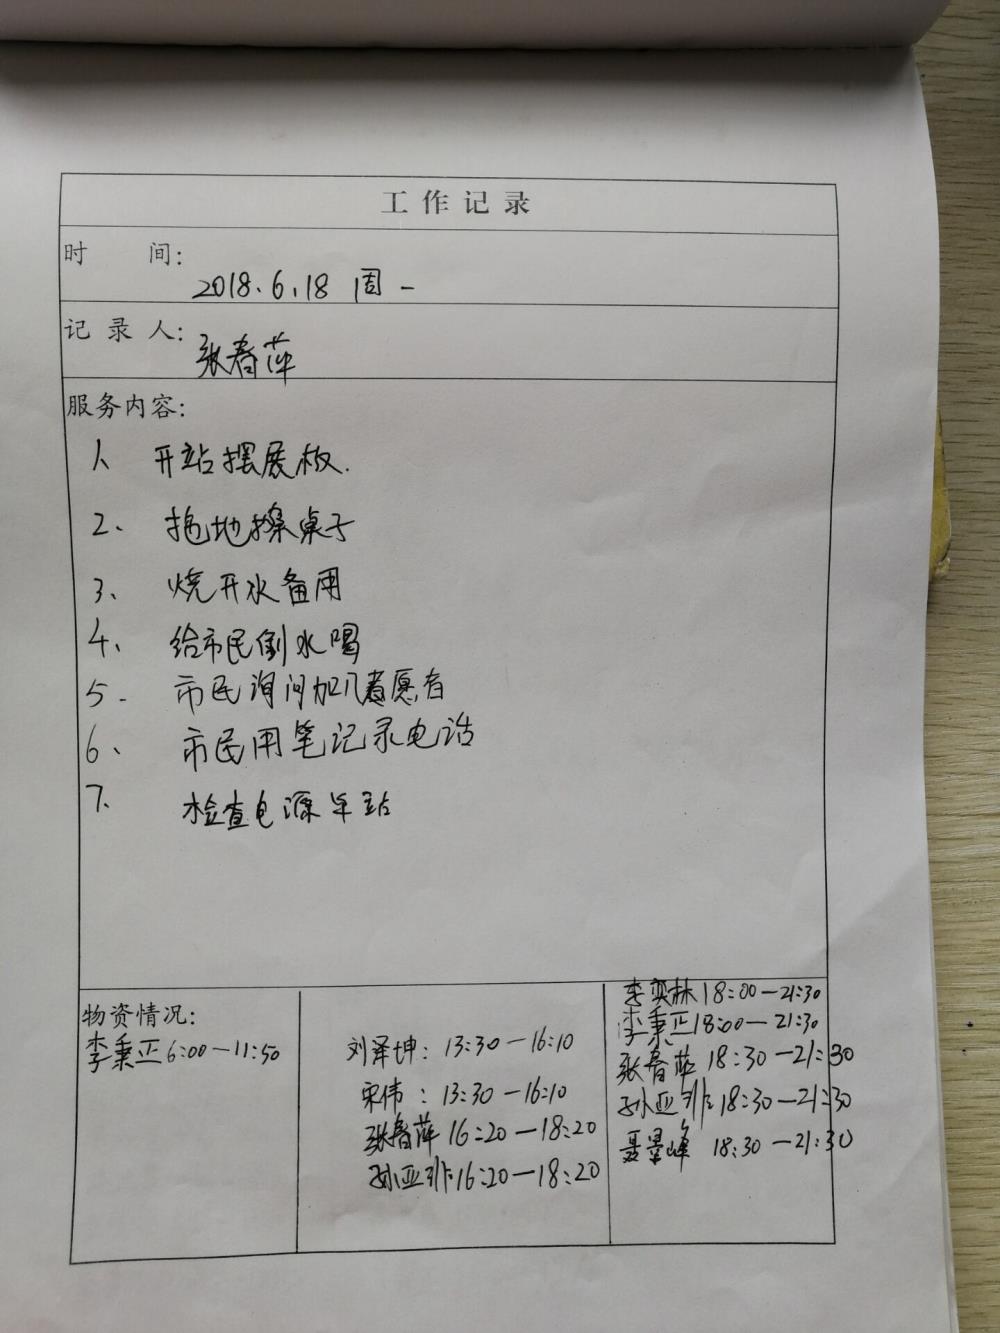 工作记录
时 间:
2018.6.18 周一
记录人:
张春萍
服务内容:
1、 开站摆展板.
2、 拖地擦桌子
3、 烧开水备用
4、 给市民倒水喝
5. 市民询问加入志愿者
6、 市民用笔记录电话
7. 检查电源关站
物资情况:
李秉正6:00—11:50
刘泽坤: 13:30—16:10
宋伟: 13:30—16:10
张春萍 16:20—18:20
孙亚非16:20—18:20
李奕林18:00—21:30
李秉正18:00—21:30
张春萍 18:30—21:30
孙亚非18:30—21:30
聂峰 18:30—21:30